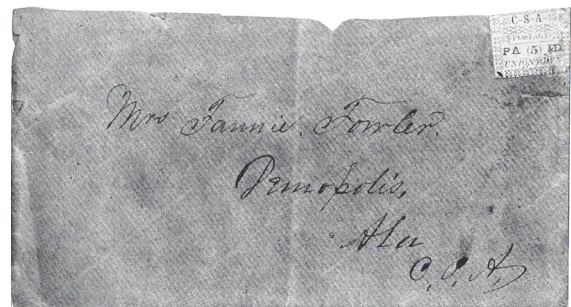 C·S·A
POSTAGE
PA (5) ID
UNIONTOWN
Mrs Fannie Fowler.
Demopolis,
Ala
C. S. A.